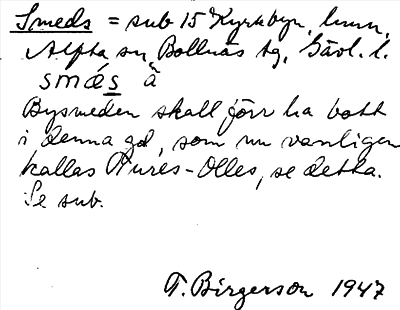 Smeds = sub 15 Kyrkbyn,
Alfta sn, Bollnäs tg, Gävl. l.
smés å
Bysmeden skall förr ha bott
i denna gd, som nu vanligen
kallas Pures-Olles, se detta.
Se sub.
T. Birgerson 1947